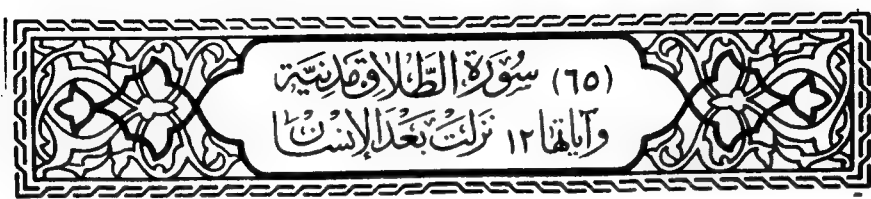 (٦٥) سُورَةُ الطَّلَاقِ مَدَنِيَّة
وَآيَاتُهَا ١٢ نَزَلَتْ بَعْدَ الإِنْسَانِ